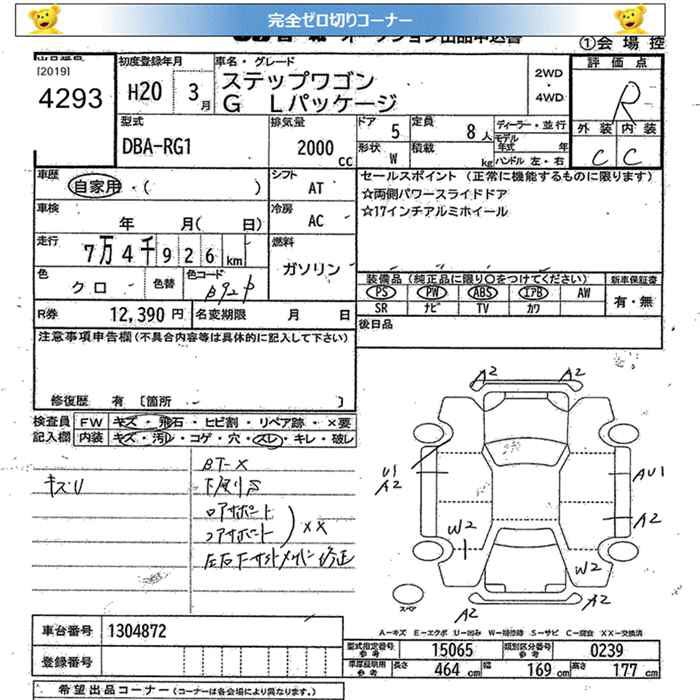 完全ゼロ切りコーナー
オークション出品申込書
①会場控
[2019]
4293
初度登録年月
H20 3月
車名・グレード
ステップワゴン
G Lパッケージ
2WD
・
4WD
評価点
R
外装 内装
C C
型式
DBA-RG1
排気量
2000 cc
ドア 5
定員 8人
形状 W
積載 kg
ディーラー・並行
モデル年式 年
ハンドル 左・右
車歴
自家用・( )
シフト
AT
セールスポイント (正常に機能するものに限ります)
☆両側パワースライドドア
☆17インチアルミホイール
車検
年 月( 日)
冷房
AC
走行
7万4千926km
燃料
ガソリン
色
クロ
色替
色コード
B92P
装備品 (純正品に限り○をつけてください)
新車保証書
PS PW ABS エアB AW
SR ナビ TV カワ
有・無
R券 12,390円
名変期限 月 日
後日品
注意事項申告欄(不具合内容等は具体的に記入して下さい)
修復歴 有 [箇所 ]
検査員 FW キズ・飛石・ヒビ割・リペア跡・×要
記入欄 内装 キズ・汚レ・コゲ・穴・スレ・キレ・破レ
キズU
BT-X
下廻りS
ロアサポート
コアサポート
××
A2 A2
U1
A2
AU1
A2
W2
W2
A2
A2
スペア
A-キズ E-エクボ U-凹み W-補修跡 S-サビ C-腐食 XX-交換済
車台番号 1304872
登録番号
型式指定番号 参考 15065
類別区分番号 参考 0239
車庫証明用 参考 長さ 464 cm 幅 169 cm 高さ 177 cm
希望出品コーナー (コーナーは各会場により異なります。)